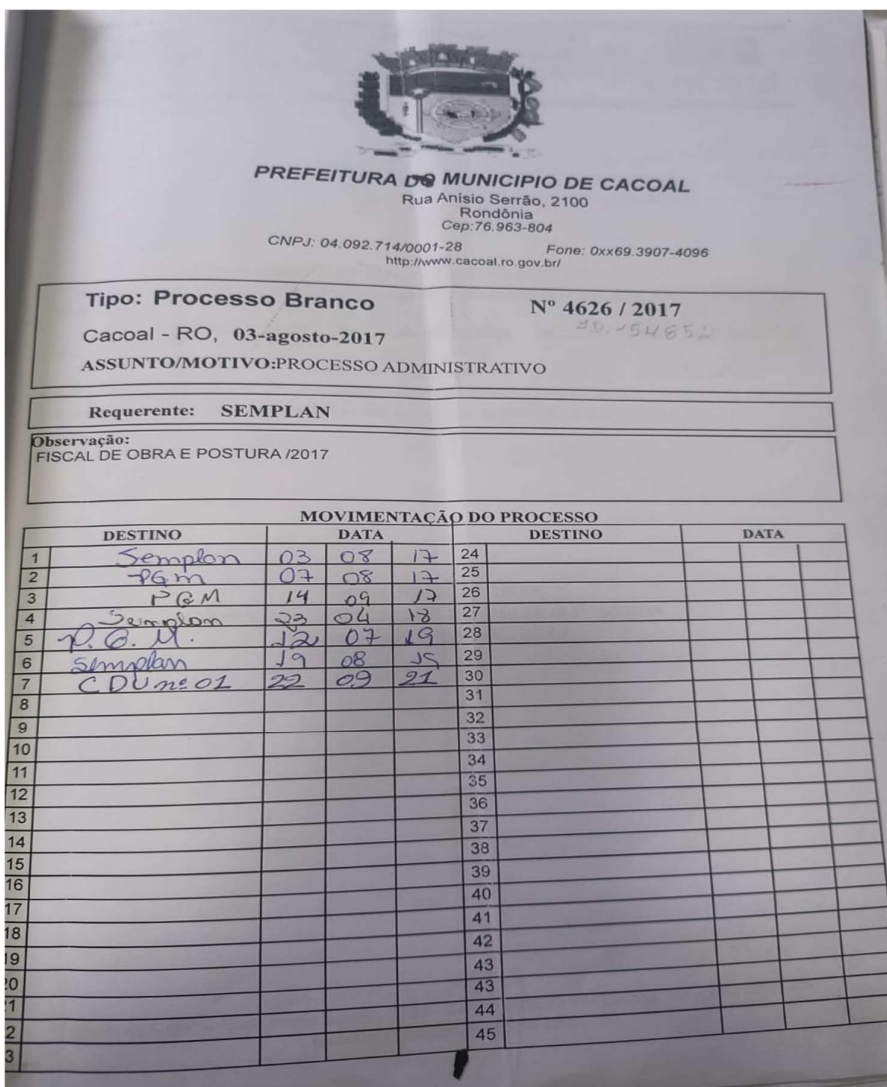 PREFEITURA DO MUNICIPIO DE CACOAL
Rua Anísio Serrão, 2100
Rondônia
Cep:76.963-804
CNPJ: 04.092.714/0001-28 Fone: 0xx69.3907-4096
http://www.cacoal.ro.gov.br/
Tipo: Processo Branco Nº 4626 / 2017
Cacoal - RO, 03-agosto-2017 ID. 154852
ASSUNTO/MOTIVO:PROCESSO ADMINISTRATIVO
Requerente: SEMPLAN
Observação:
FISCAL DE OBRA E POSTURA /2017
MOVIMENTAÇÃO DO PROCESSO
DESTINO DATA DESTINO DATA
1 Semplan 03 08 17 24
2 PGM 07 08 17 25
3 PGM 14 09 17 26
4 Semplan 23 04 18 27
5 P.G.M. 12 07 19 28
6 Semplan 19 08 19 29
7 CDU nº 01 22 09 21 30
8 31
9 32
10 33
11 34
12 35
13 36
14 37
15 38
16 39
17 40
18 41
19 42
20 43
1 43
2 44
3 45